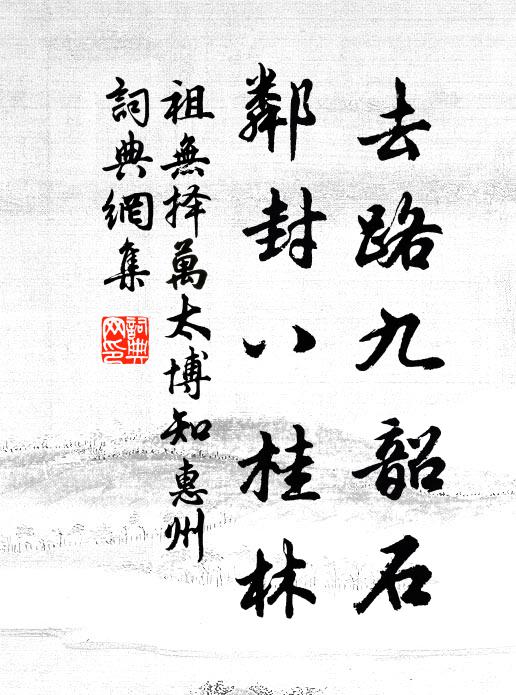 去路九韶石
鄰封八桂林
祖無择萬太博知惠州
詞典網集
詞典網印